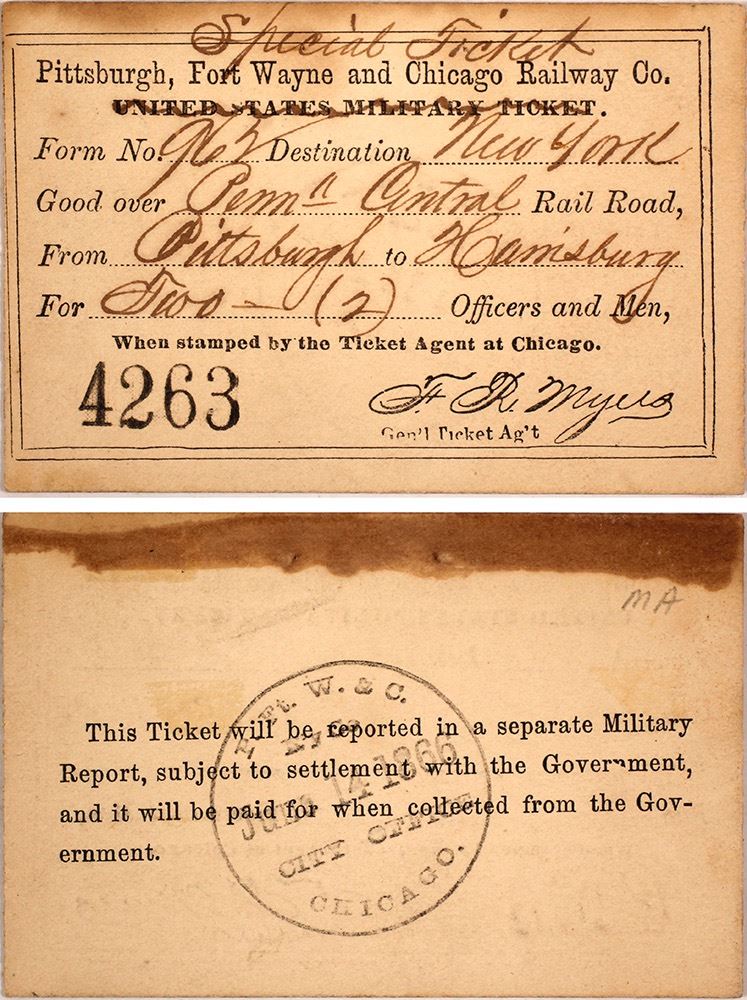 Special Ticket
Pittsburgh, Fort Wayne and Chicago Railway Co.
UNITED STATES MILITARY TICKET.
Form No. Destination New York
Good over Penn a Central Rail Road,
From Pittsburgh to Harrisburg
For Two - (2) Officers and Men,
When stamped by the Ticket Agent at Chicago.
4263
F. R. Myers
Gen'l Ticket Ag't
MA
This Ticket will be reported in a separate Military
Report, subject to settlement with the Government,
and it will be paid for when collected from the Gov-
ernment.
P. Ft. W. & C.
Ry Co
June 14 1866
CITY OFFICE
CHICAGO.